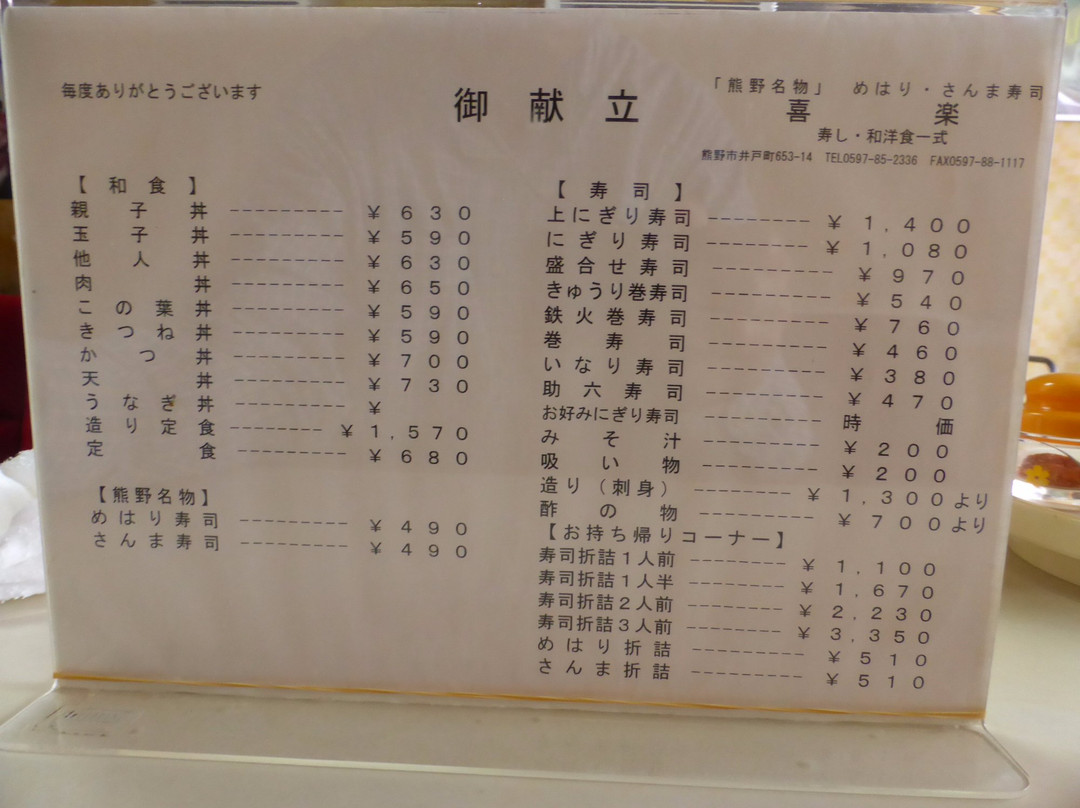 毎度ありがとうございます
御献立
「熊野名物」 めはり・さんま寿司
喜楽
寿し・和洋食一式
熊野市井戸町653-14 TEL0597-85-2336 FAX0597-88-1117
【和食】
親子丼 ---------- ¥630
玉子丼 ---------- ¥590
他人丼 ---------- ¥630
肉丼 ---------- ¥650
この葉丼 ---------- ¥590
きつね丼 ---------- ¥590
かつ丼 ---------- ¥700
天丼 ---------- ¥730
うなぎ丼 ---------- ¥
造り定食 -------- ¥1,570
定食 ---------- ¥680
【熊野名物】
めはり寿司 ---------- ¥490
さんま寿司 ---------- ¥490
【寿司】
上にぎり寿司 -------- ¥1,400
にぎり寿司 -------- ¥1,080
盛合せ寿司 ---------- ¥970
きゅうり巻寿司 ---------- ¥540
鉄火巻寿司 ---------- ¥760
巻寿司 ---------- ¥460
いなり寿司 ---------- ¥380
助六寿司 ---------- ¥470
お好みにぎり寿司 ---------- 時価
みそ汁 ---------- ¥200
吸い物 ---------- ¥200
造り(刺身) -------- ¥1,300より
酢の物 ---------- ¥700より
【お持ち帰りコーナー】
寿司折詰1人前 -------- ¥1,100
寿司折詰1人半 -------- ¥1,670
寿司折詰2人前 -------- ¥2,230
寿司折詰3人前 -------- ¥3,350
めはり折詰 ---------- ¥510
さんま折詰 ---------- ¥510